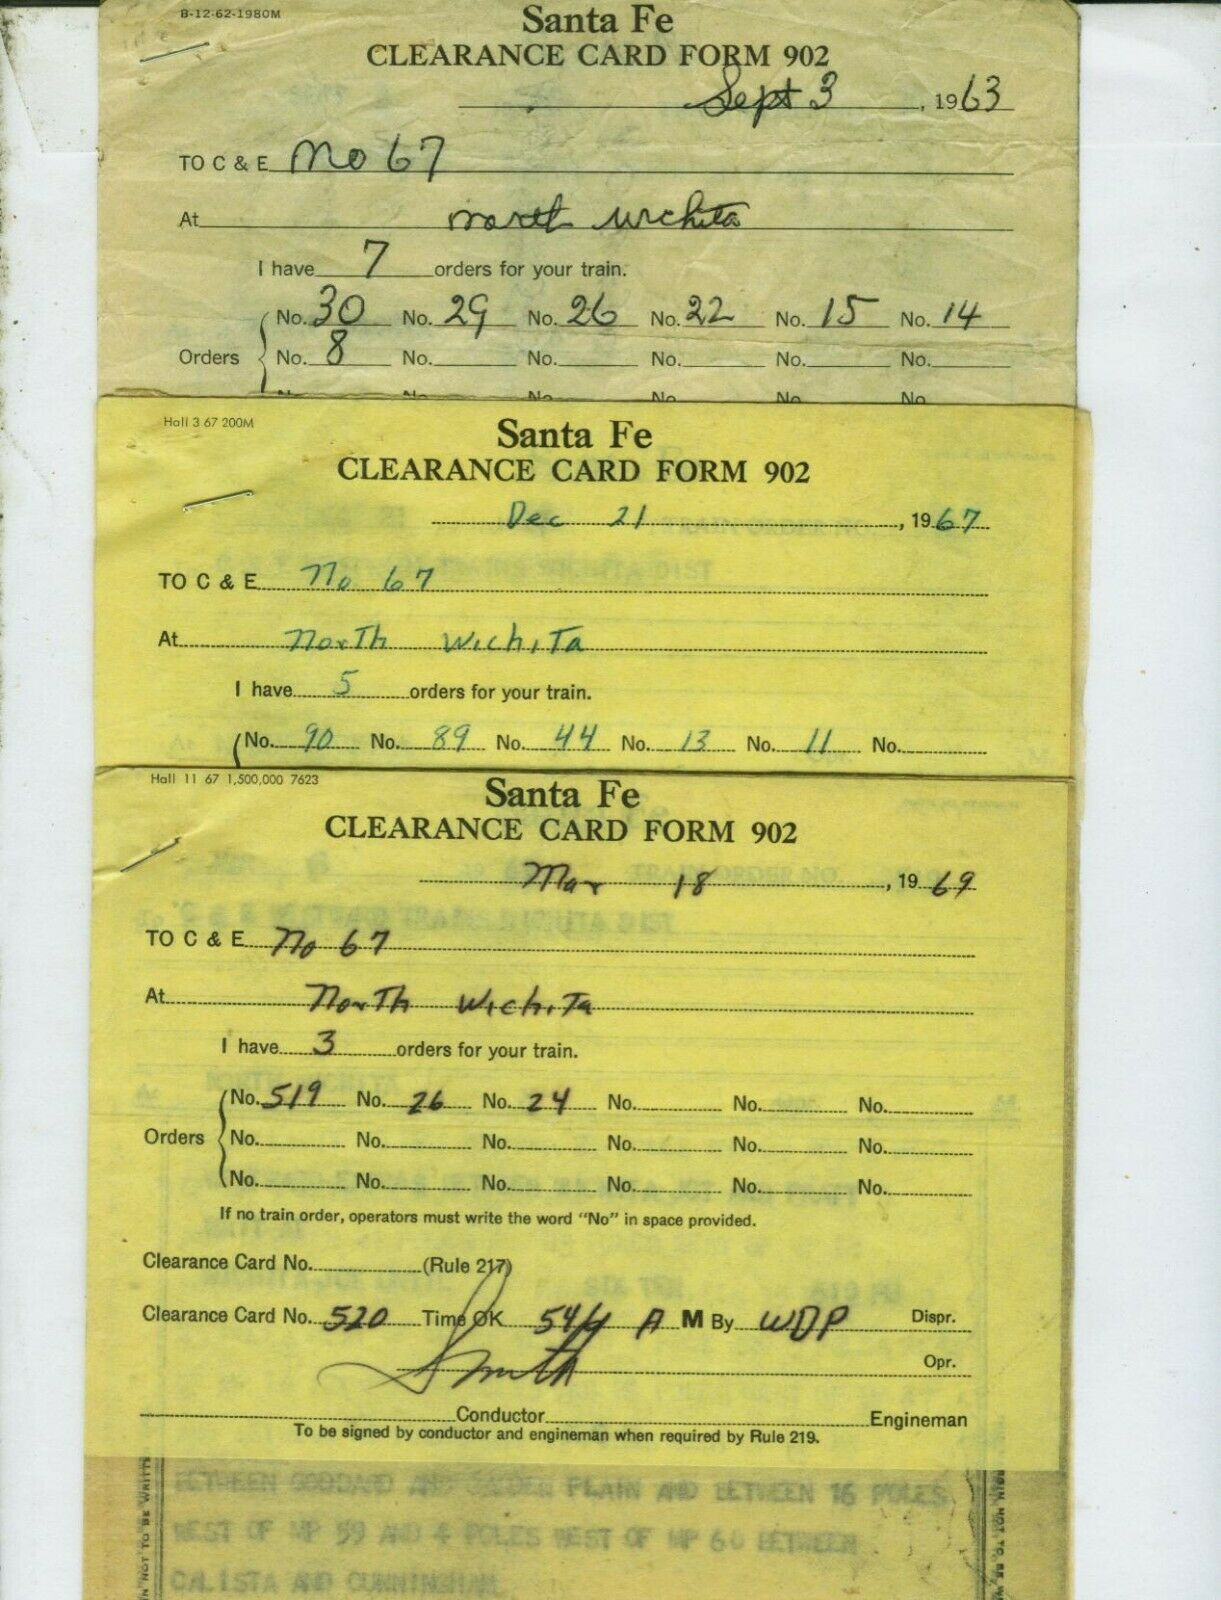 B-12-62-1980M
Santa Fe
CLEARANCE CARD FORM 902
Sept 3, 1963
TO C & E No 67
At North Wichita
I have 7 orders for your train.
No. 30 No. 29 No. 26 No. 22 No. 15 No. 14
Orders No. 8 No. No. No. No. No.
No. No. No. No. No.
Hall 3 67 200M
Santa Fe
CLEARANCE CARD FORM 902
Dec 21, 1967
TO C & E No 67
At North Wichita
I have 5 orders for your train.
No. 90 No. 89 No. 44 No. 13 No. 11 No.
Hall 11 67 1,500,000 7623
Santa Fe
CLEARANCE CARD FORM 902
Mar 18, 1969
TO C & E No 67
At North Wichita
I have 3 orders for your train.
No. 519 No. 26 No. 24 No. No. No.
Orders No. No. No. No. No. No.
No. No. No. No. No. No.
If no train order, operators must write the word "No" in space provided.
Clearance Card No. (Rule 217)
Clearance Card No. 520 Time OK 546 A M By WDP Dispr.
Smith Opr.
Conductor Engineman
To be signed by conductor and engineman when required by Rule 219.
BETWEEN GODDARD AND GARDEN PLAIN AND BETWEEN 16 POLES
WEST OF MP 59 AND 4 POLES WEST OF MP 60 BETWEEN
CALISTA AND CUNNINGHAM